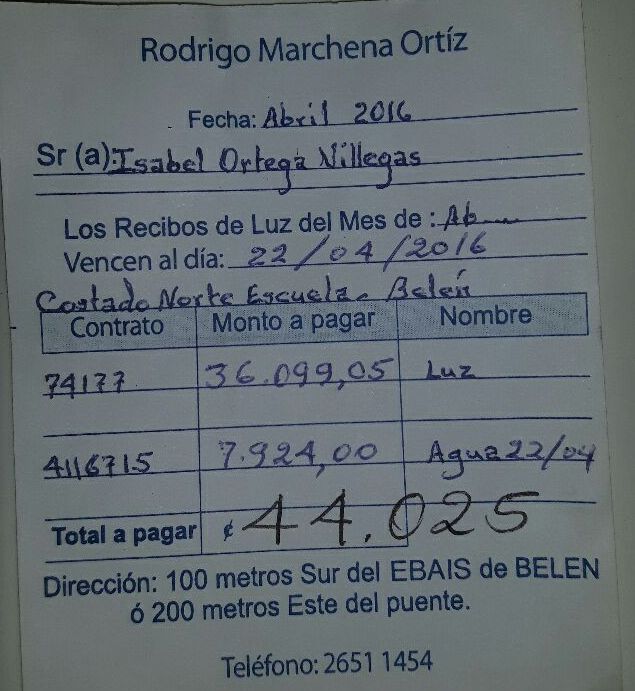 Rodrigo Marchena Ortíz
Fecha: Abril 2016
Sr (a): Isabel Ortega Villegas
Los Recibos de Luz del Mes de : Ab
Vencen al día: 22/04/2016
Costado Norte Escuela. Belén
Contrato Monto a pagar Nombre
74177 36.099,05 Luz
4116715 7.924,00 Agua 22/04
Total a pagar ¢ 44.025
Dirección: 100 metros Sur del EBAIS de BELEN
ó 200 metros Este del puente.
Teléfono: 2651 1454